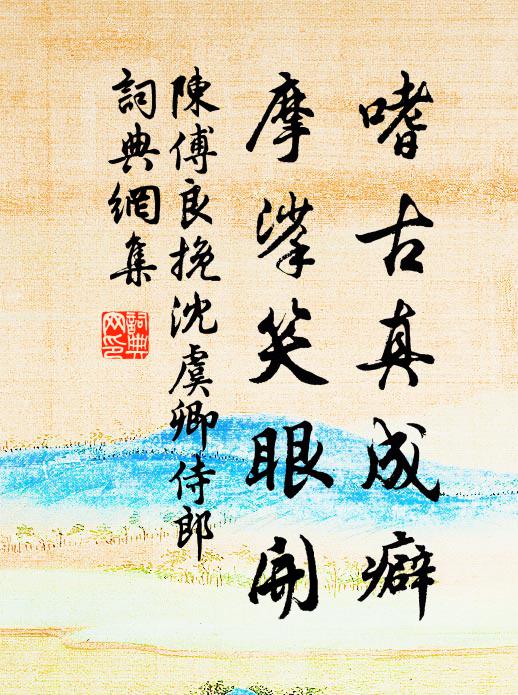 嗜古真成癖
摩挲笑眼開
陳傅良挽沈虞卿侍郎
詞典網集
詞典網印